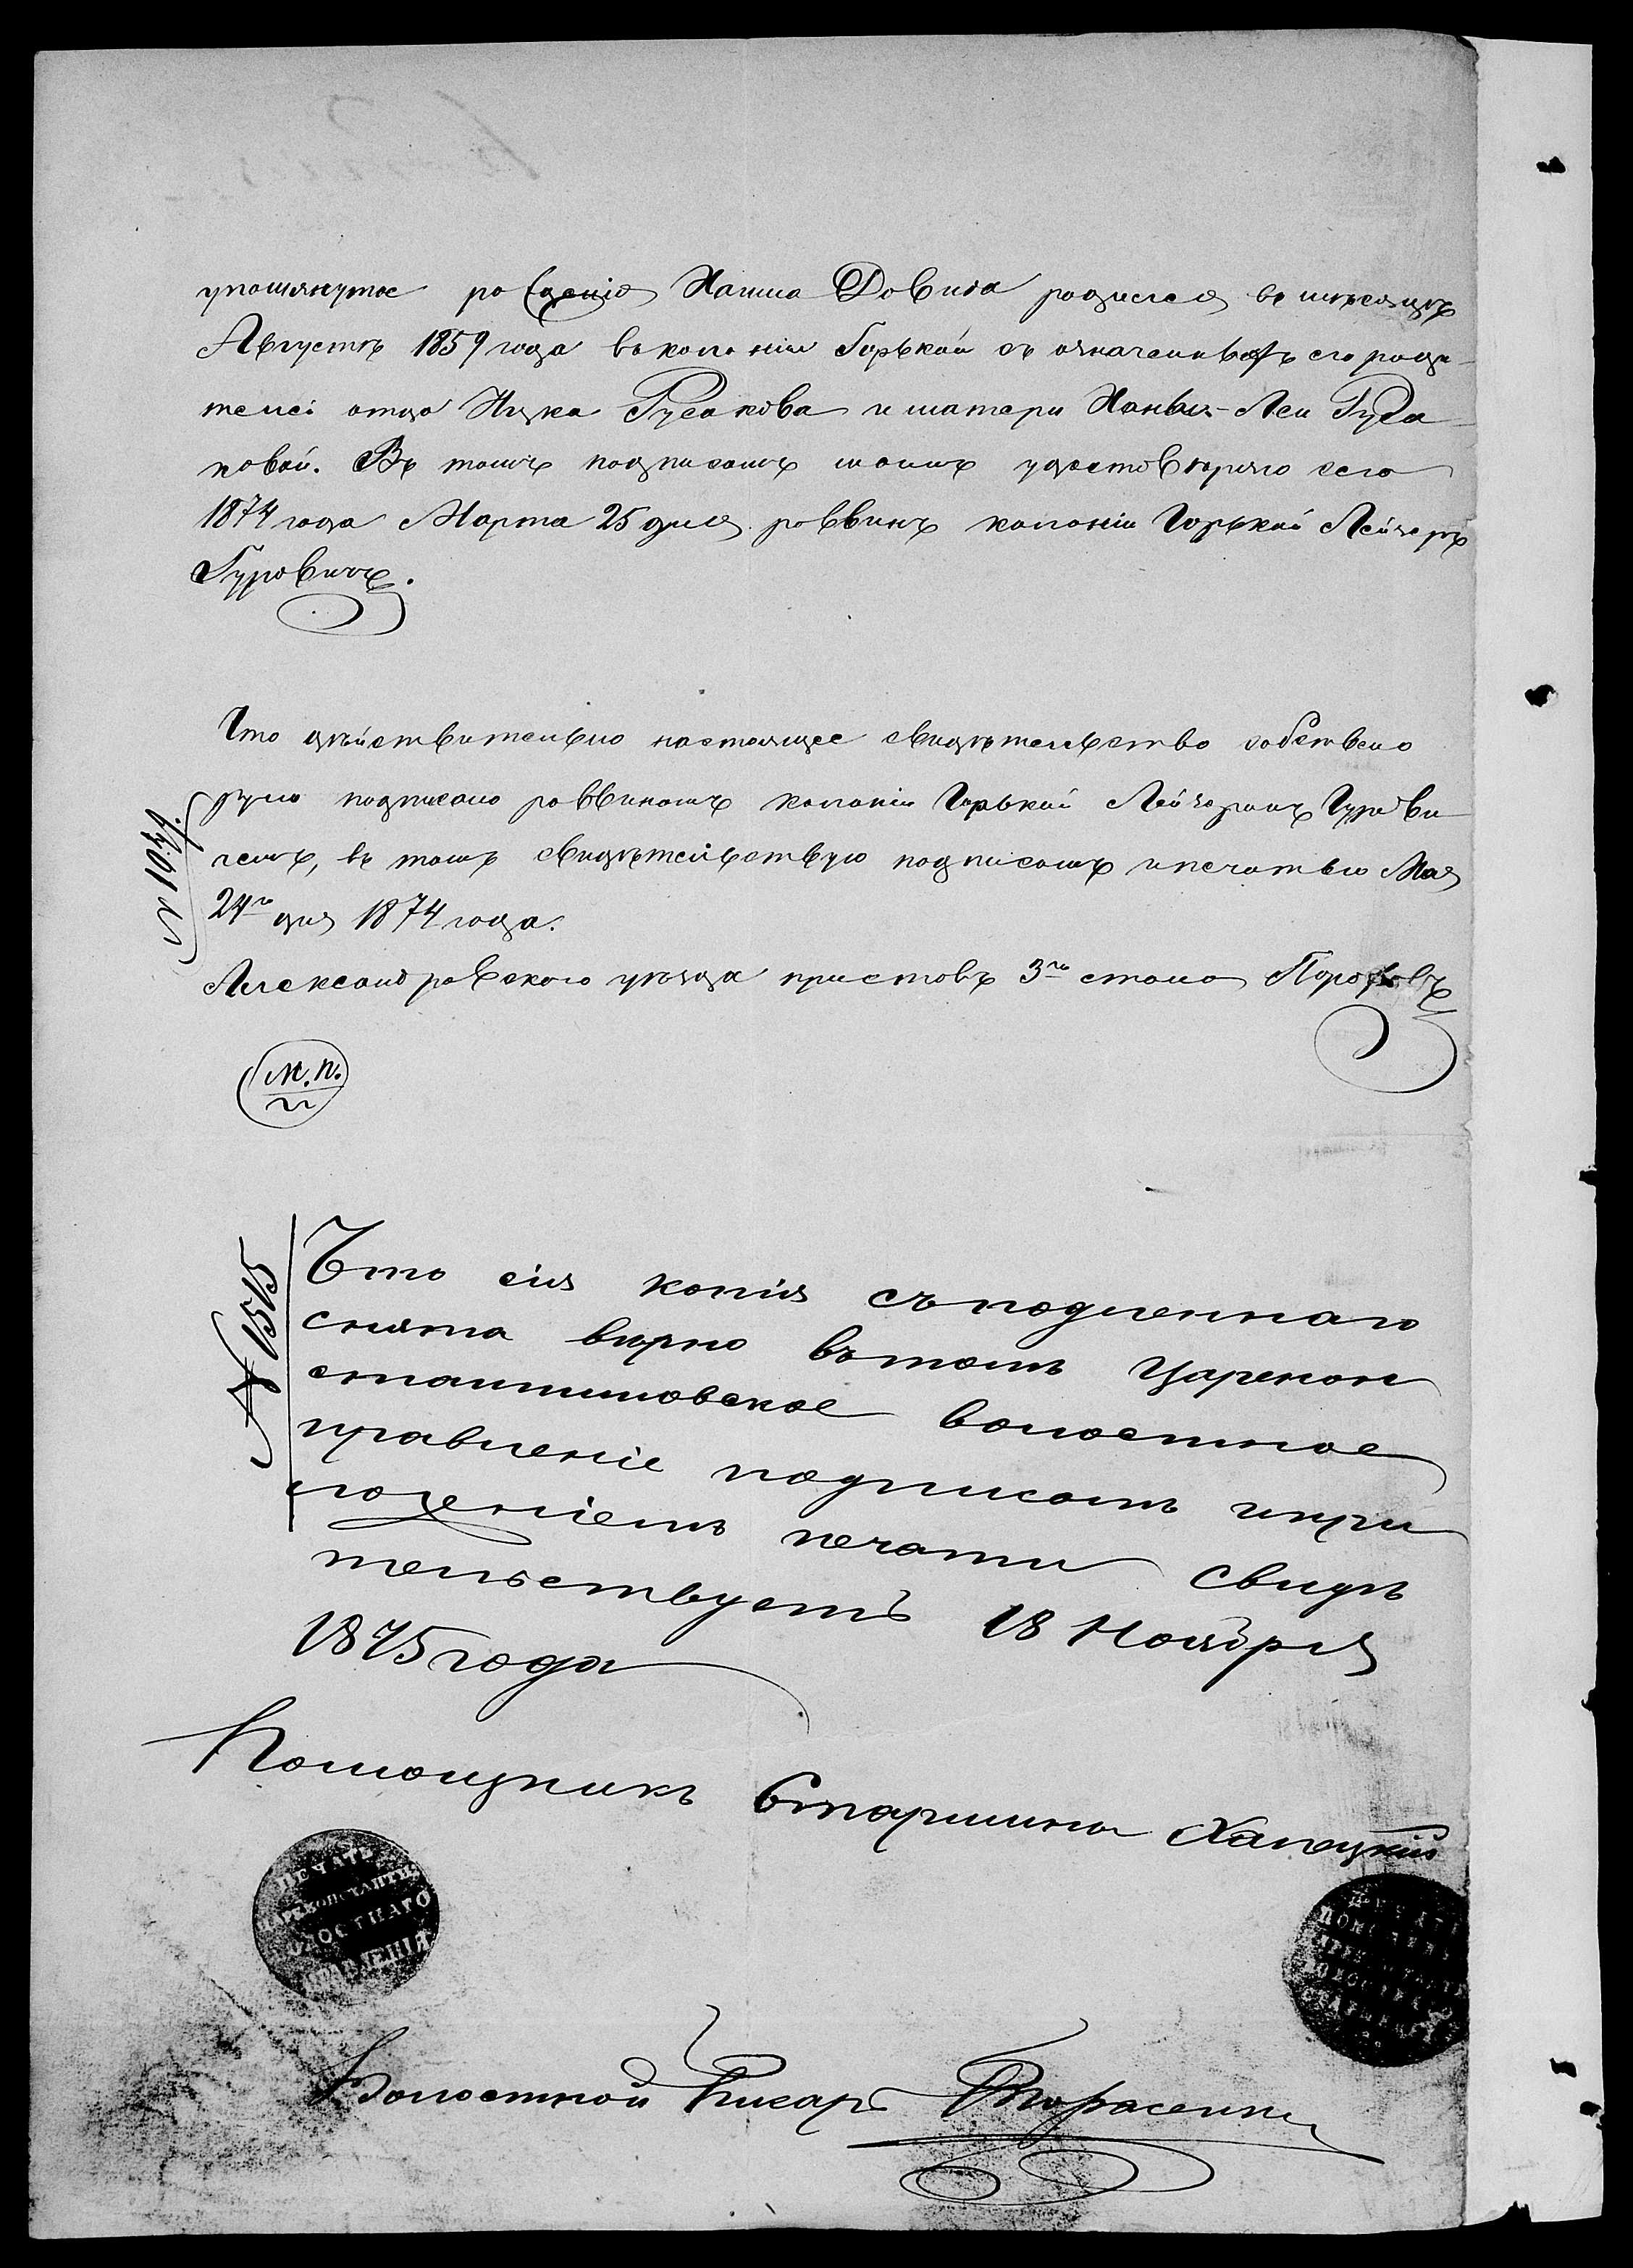 упомянутое рожденіе Хаима Довида родился въ мѣсяцѣ
Августѣ 1859 года въ колоніи Горькой съ означенныхъ его роди-
телей отца Ицка Гусакова и матери Ханы-Леи Гуса-
ковой. Въ томъ подписомъ моимъ удостовѣряю сего
1874 года Марта 25 дня раввинъ колоніи Горькой Лейзеръ
Гуровичъ.
Что дѣйствительно настоящее свидѣтельство собствено
ручно подписано раввиномъ колоніи Горькой Лейзеромъ Гурови-
чемъ, въ томъ свидѣтельствую подписомъ и печатью Мая
24го дня 1874 года.
Александровского уѣзда приставъ 3го стана
М.П.
№ 1515
Что сія копія съ подленнаго
снята вѣрно въ томъ Царекон
стантиновское волостное
правленіе подписомъ и при
ложеніемъ печати свидѣ
тельствуетъ 18 Ноября
1875 года
Помощникъ Старшины
ПЕЧАТЬ
ЦАРЕКОНСТАНТИН
ВОЛОСТНАГО
ПРАВЛЕНІЯ
Волостной Писарь Тарасенко